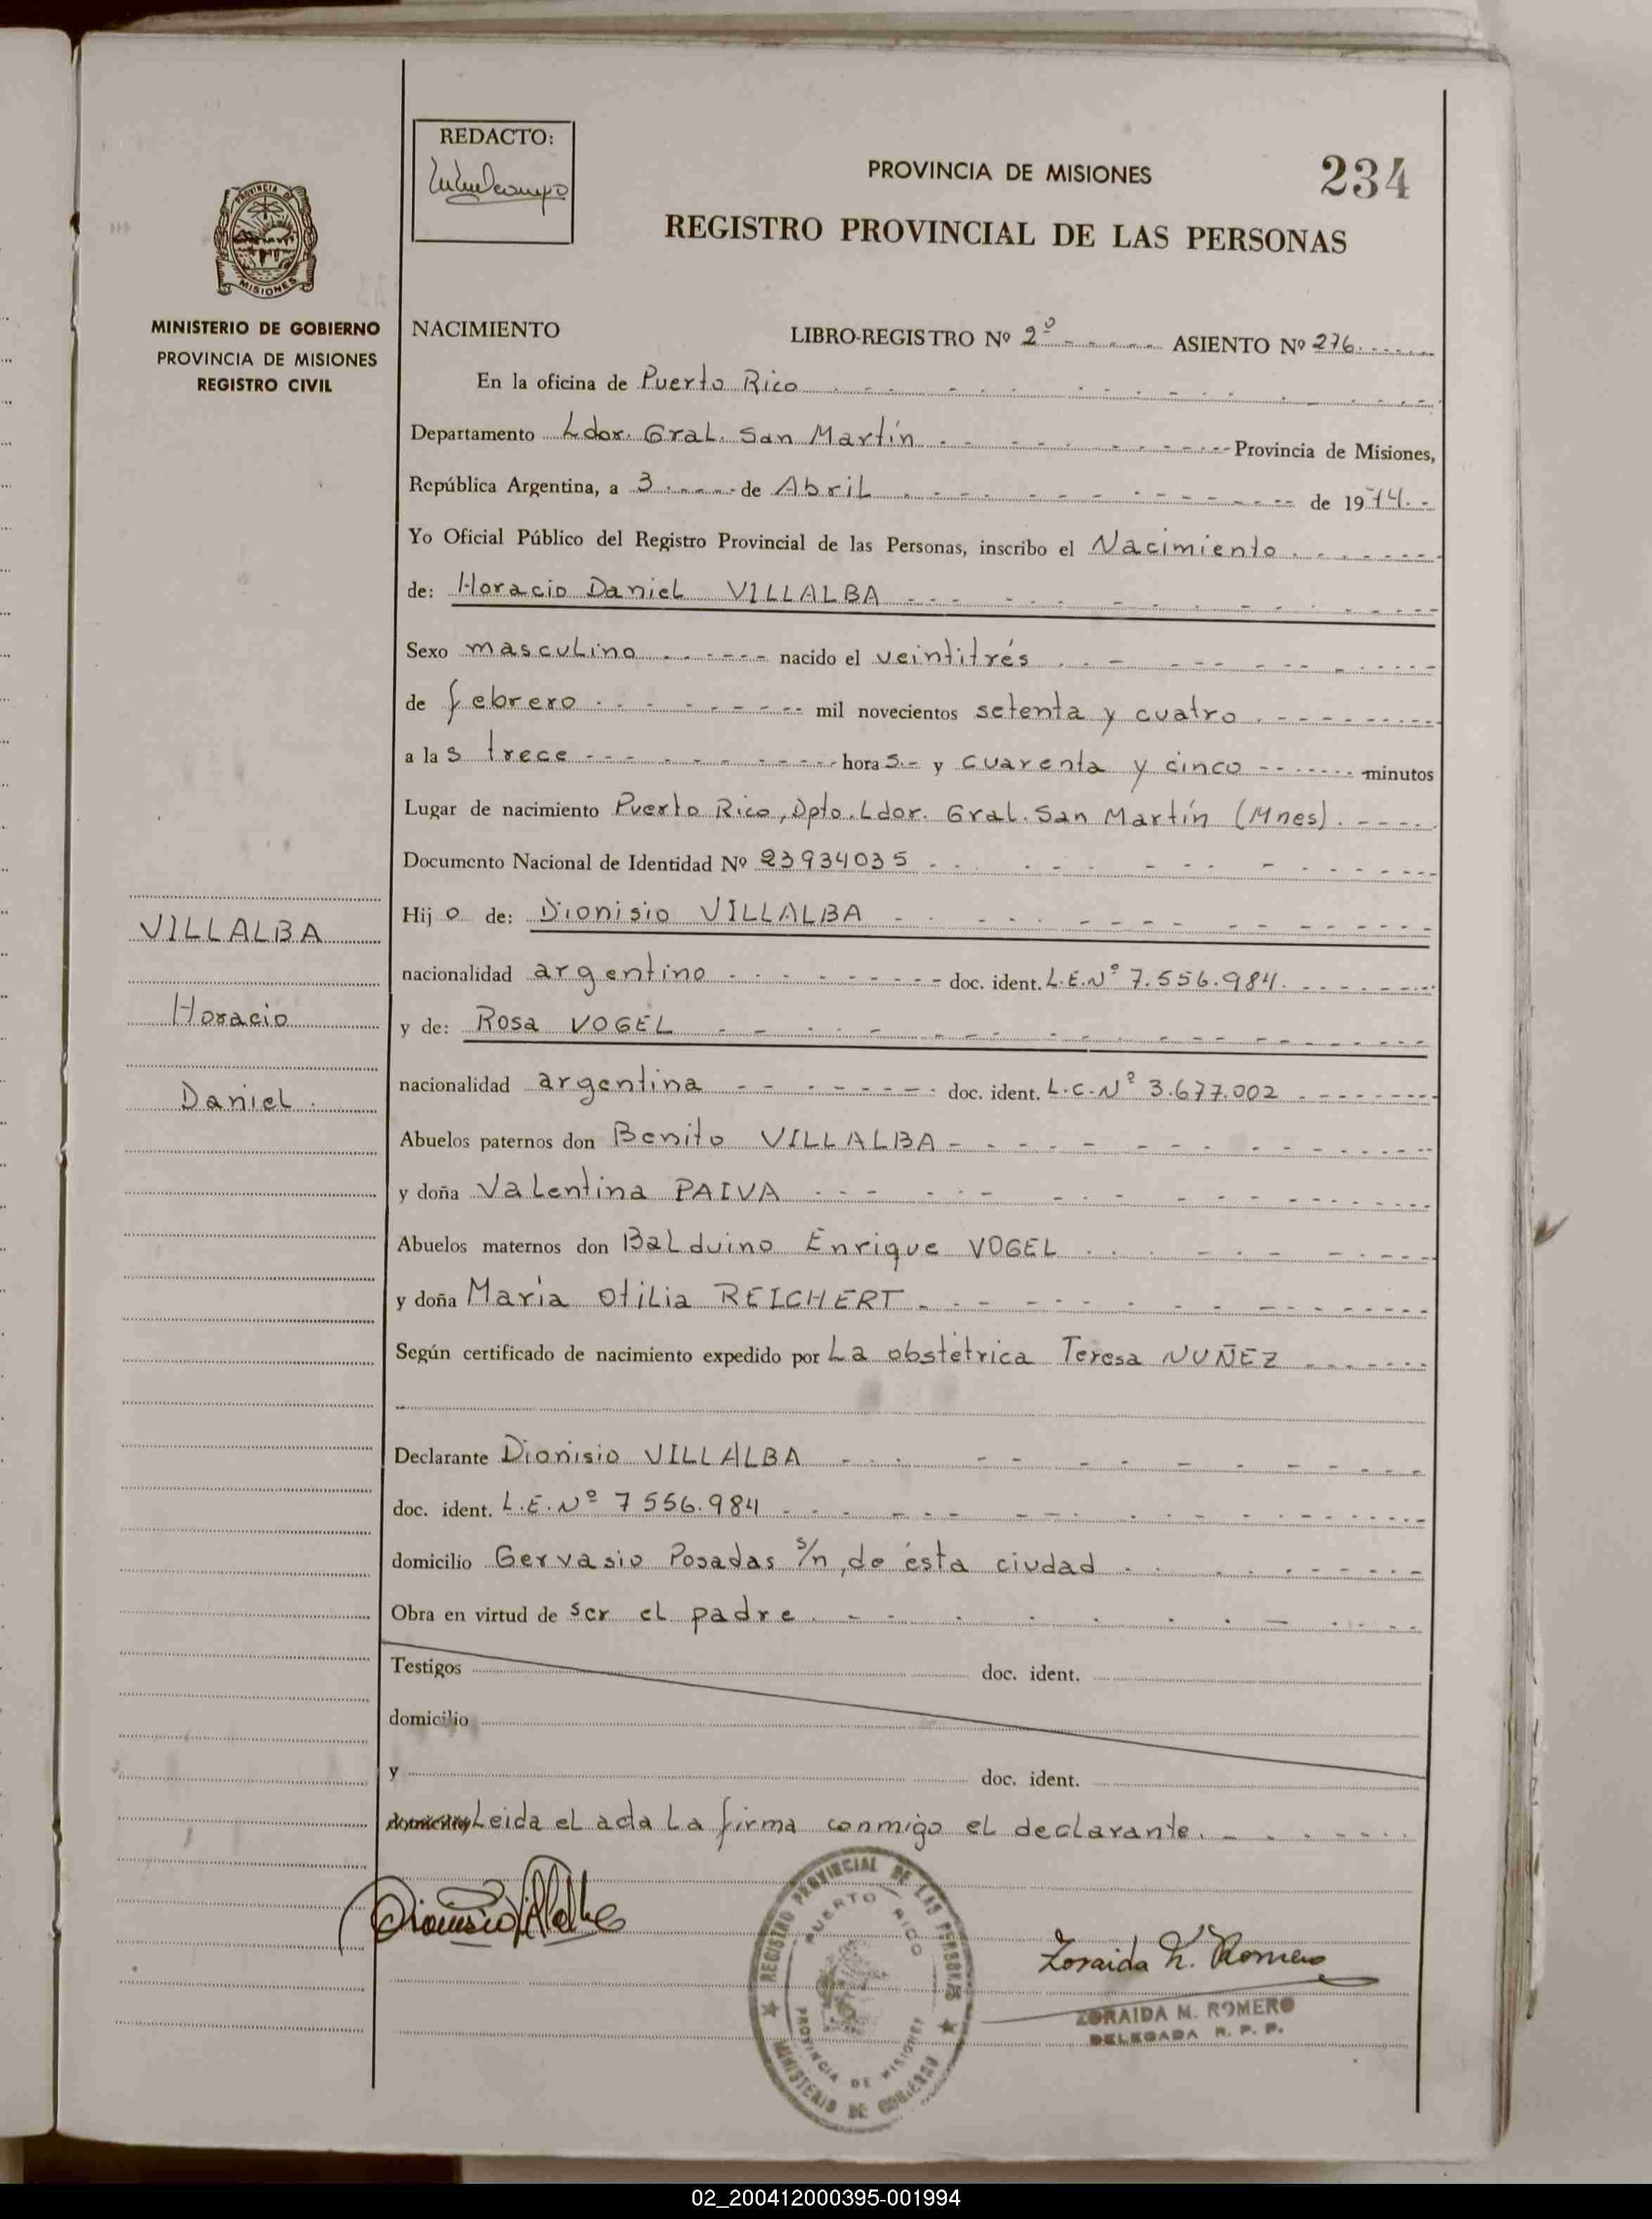 REDACTO:
PROVINCIA DE MISIONES
234
REGISTRO PROVINCIAL DE LAS PERSONAS
PROVINCIA DE
MISIONES
MINISTERIO DE GOBIERNO
PROVINCIA DE MISIONES
REGISTRO CIVIL
NACIMIENTO LIBRO-REGISTRO Nº 2º ASIENTO Nº 276
En la oficina de Puerto Rico
Departamento Ldor. Gral. San Martín Provincia de Misiones,
República Argentina, a 3 de Abril de 1974
Yo Oficial Público del Registro Provincial de las Personas, inscribo el Nacimiento
de: Horacio Daniel VILLALBA
Sexo masculino nacido el veintitrés
de febrero mil novecientos setenta y cuatro
a las trece horas y cuarenta y cinco minutos
Lugar de nacimiento Puerto Rico, Dpto. Ldor. Gral. San Martín (Mnes)
Documento Nacional de Identidad Nº 23934035
Hijo de: Dionisio VILLALBA
nacionalidad argentino doc. ident. L.E.Nº 7.556.984
y de: Rosa VOGEL
nacionalidad argentina doc. ident. L.C.Nº 3.677.002
Abuelos paternos don Benito VILLALBA
y doña Valentina PAIVA
Abuelos maternos don Balduino Enrique VOGEL
y doña María Otilia REICHERT
Según certificado de nacimiento expedido por La obstétrica Teresa NUÑEZ
Declarante Dionisio VILLALBA
doc. ident. L.E.Nº 7 556.984
domicilio Gervasio Posadas s/n, de ésta ciudad
Obra en virtud de ser el padre
Testigos doc. ident.
domicilio
y doc. ident.
Leida el acta La firma conmigo el declarante.
VILLALBA
Horacio
Daniel
Dionisio Villalba
REGISTRO PROVINCIAL DE LAS PERSONAS
PUERTO RICO
PROVINCIA DE MISIONES
MINISTERIO DE GOBIERNO
Zoraida M. Romero
ZORAIDA M. ROMERO
DELEGADA R. P. P.
02_200412000395-001994